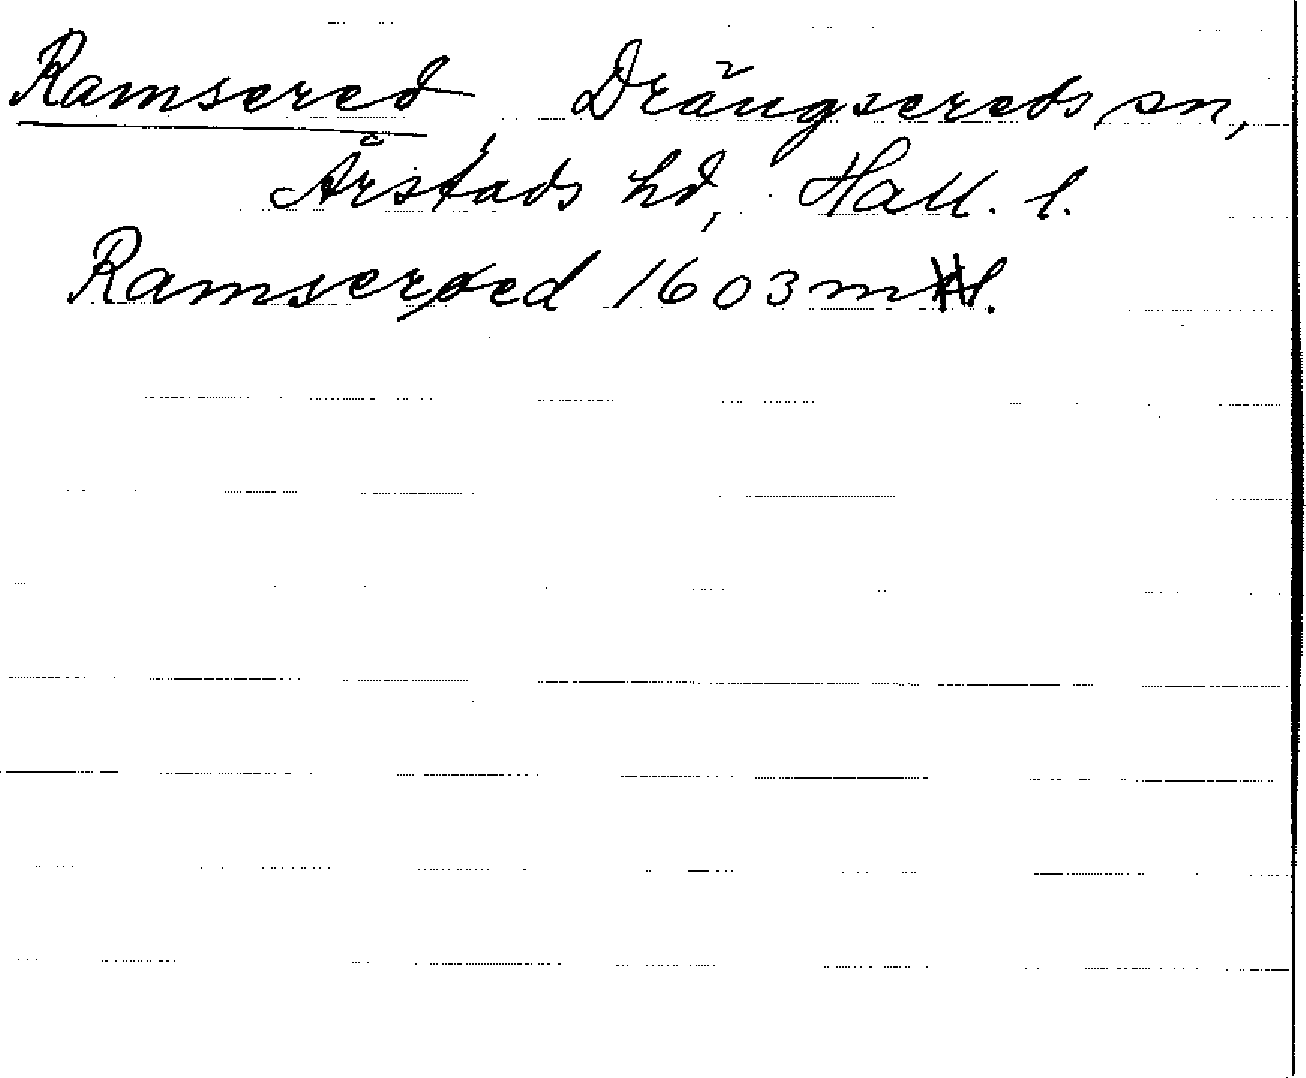 Ramsered, Drängsereds sn,
Årstads hd, Hall. l.
Ramsered 1603 ml.